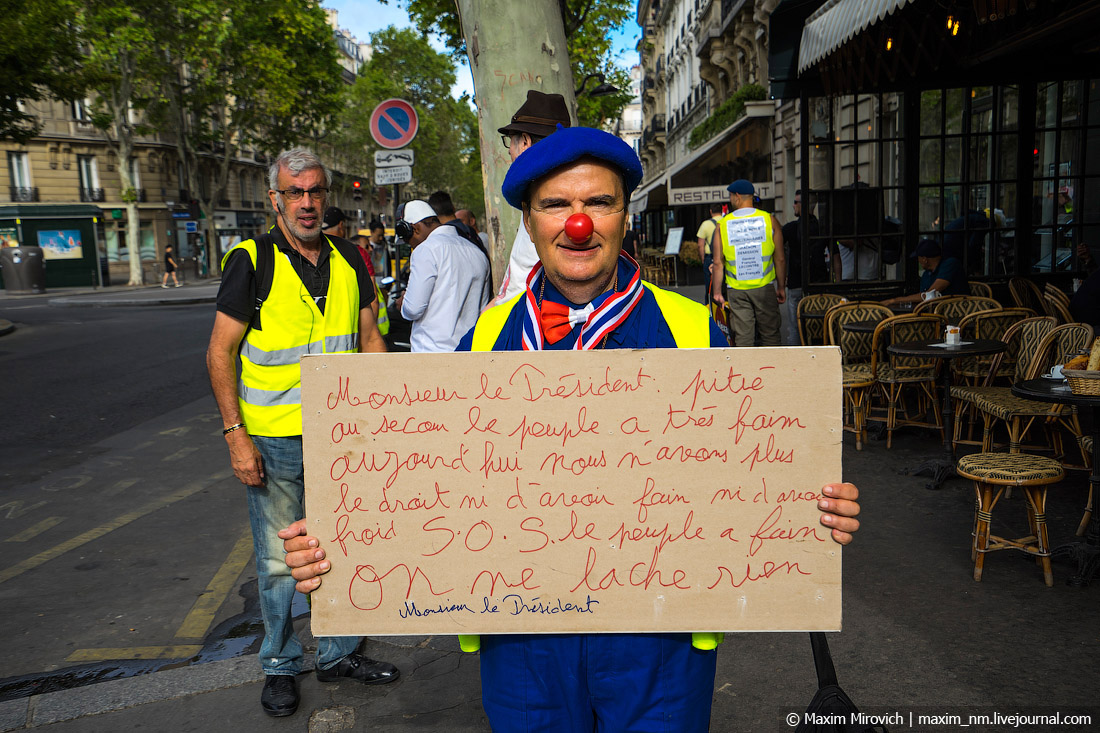 RESTAURANT
Monsieur le Président. pitié
au secour le peuple a trés faim
aujourd'hui nous n'avons plus
le droit ni d'avoir faim ni d'avoir
froid S.O.S. le peuple a faim
On ne lache rien
Monsieur le Président
© Maxim Mirovich | maxim_nm.livejournal.com